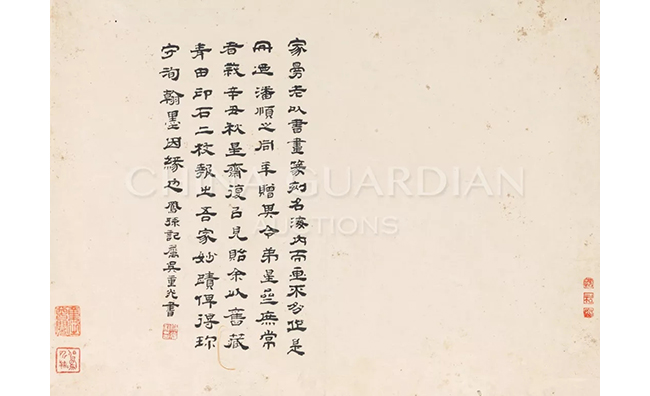 家曼老以書畫篆刻名海内而不多作是
冊迺潘順之同年贈其令弟星庶常
者辛丑秋星齋復以見貽余以舊藏
青田印石二枚報之吾家妙蹟俾得珎
守洵翰墨因緣也 孫記屬吳重光書
CHINA GUARDIAN
AUCTIONS